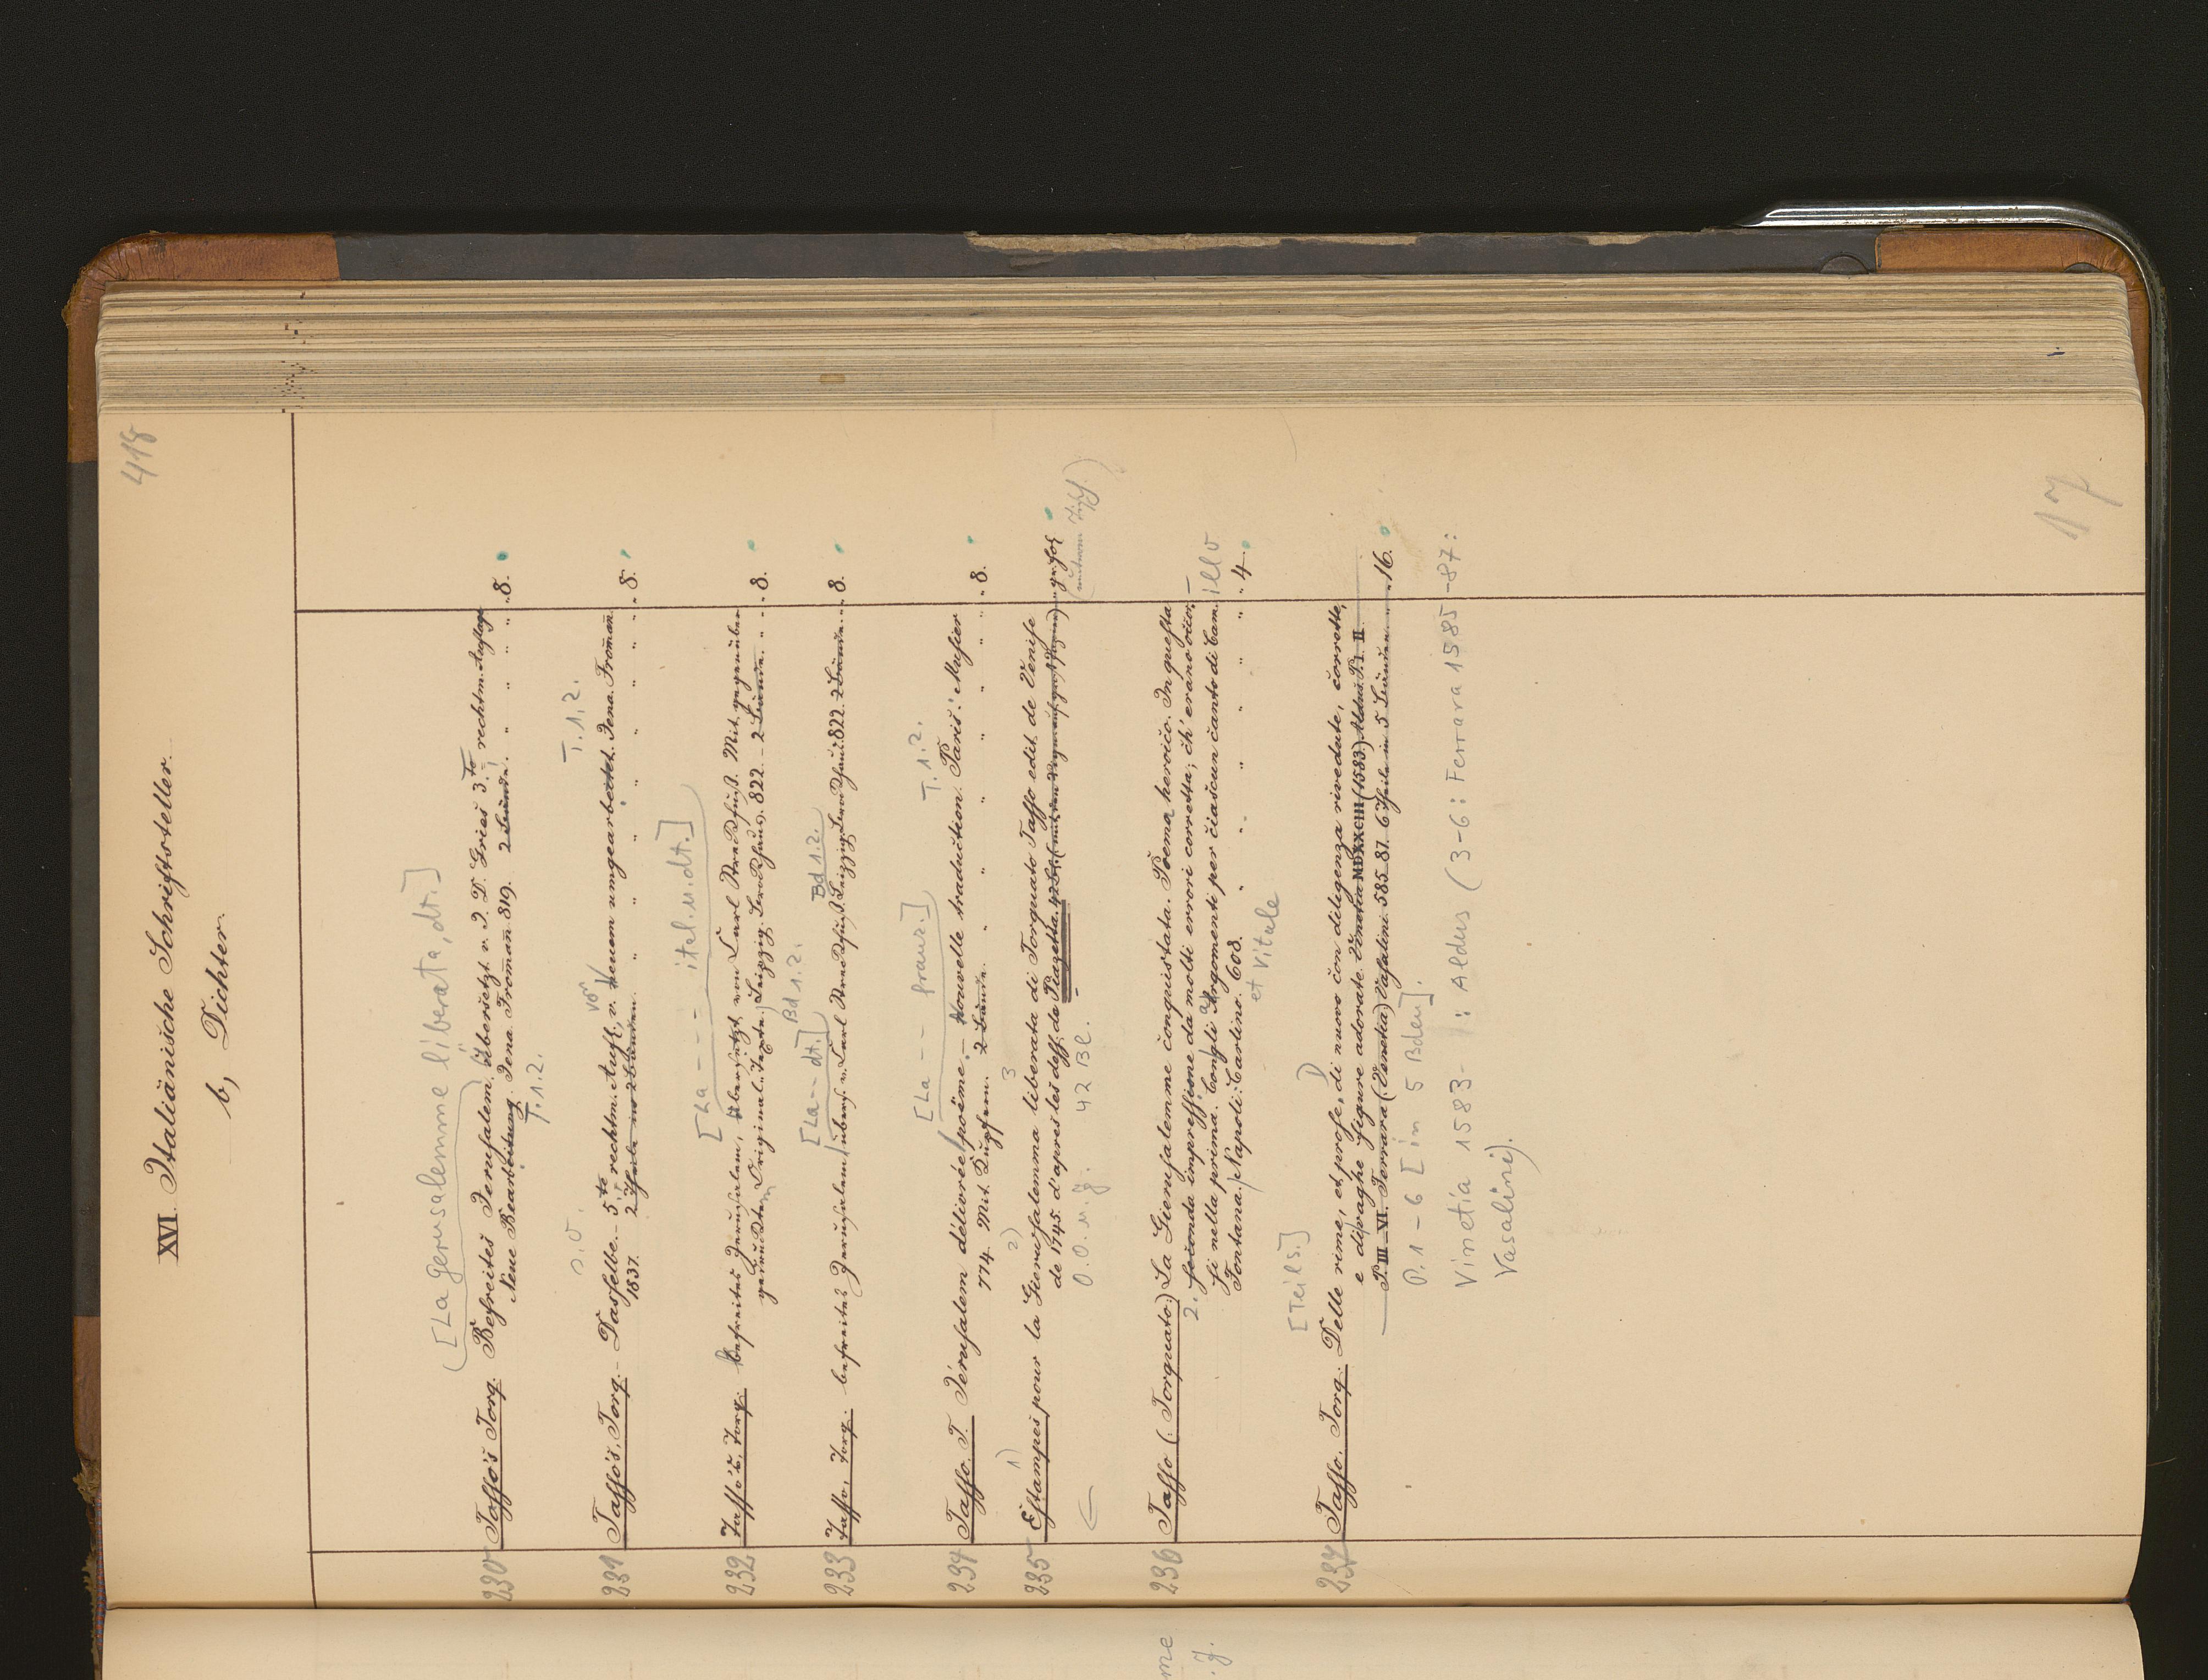 418
XVI. Italiänische Schriftsteller.
b, Dichter.
[La gerusalemme liberata, dt.]
230 Tasso's Torq. Befreites Jerusalem, übersetzt v. J. D. Gries 3.te rechtm. Auflage
Neue Bearbeitung. Jena. Fromann. 819. 2 Bände. " " " " 8.
T.1.2.
s. o. T.1.2.
231 Tasso's, Torq. Dasselbe. 5.te rechtm. Aufl, v. neuem umgearbeitet. Jena. Fromann
von
1837. 2 Theile in 2 Bänden. " " " " " " 8.
[La - - - ital. u. dt.]
232 Tasso's, Torq. befreites Jerusalem, übersetzt von Carl Streckfuß. Mit gegenüber
gedrucktem Original-Texte. Leipzig. Brockhaus. 822. 2 Bände. " " 8.
Bd 1.2.
[La - - dt.] Bd 1.2.
233 Tasso, Torq. befreites Jerusalem übers. v. Carl Streckfuß. Leipzig. Brockhaus. 822. 2 Bände. " " 8.
[La - - franz.] T.1.2.
234 Tasso. T. Jérusalem délivrée poëme. - Nouvelle traduction. Paris: Musier
774. Mit Kupfern. 2 Bände. " " " " " " 8.
1) 2) 3
235 Estampes pour la Gierusalemma liberata di Torquato Tasso edit. de Venise
de 1745. d'apres les dess. de Piazetta. 42 Bl.
O.O. u. J. 42 Bl.
236 Tasso (: Torquato:) La Gierusalemme conquistata. Poema heroico. In questa
2. seconda impressione da molti errori corretta; ch'erano occor-
si nella prima. Congli Argomenti per ciascun canto di Cam. illo
Fontana. Napoli: Carlino. 608. " " " " " " 4.
et Vitale
[Teils.]
237 Tasso. Torq. Delle rime, et prose, di nuovo con diligenza rivedute, corrette,
e di vaghe figure adorate. Vinetia MDXXCIII (1583) Aldus P. I. II
P. III - VI. Ferrara (Venetia) Vasalini. 585-87. 6 Theile in 5 Bänden " " 16.
P.1-6 [in 5 Bden].
Vinetia 1583- : Aldus (3-6: Ferrara 1585-87:
Vasalini).
17
me
. J.